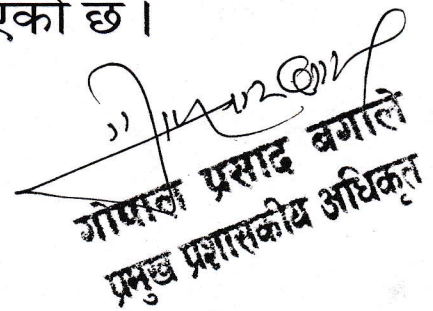 एको छ ।
गोपाल प्रसाद बगाले
प्रमुख प्रशासकीय अधिकृत